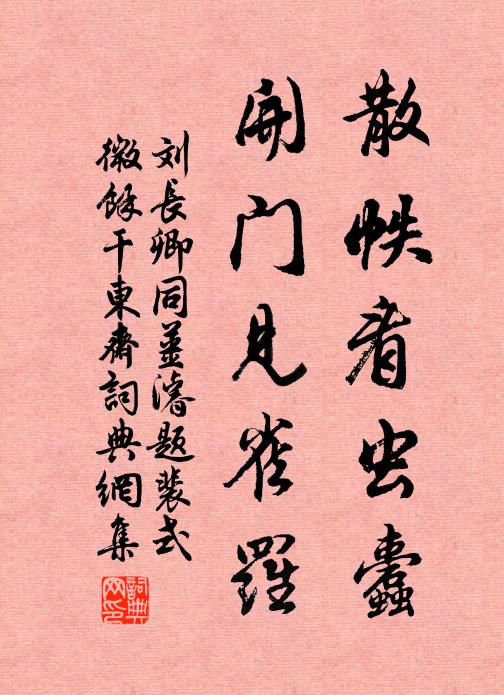 散帙看虫蠹
開门見雀羅
刘長卿同姜濬題裴式
微餘干東齋詞典網集
詞典网印